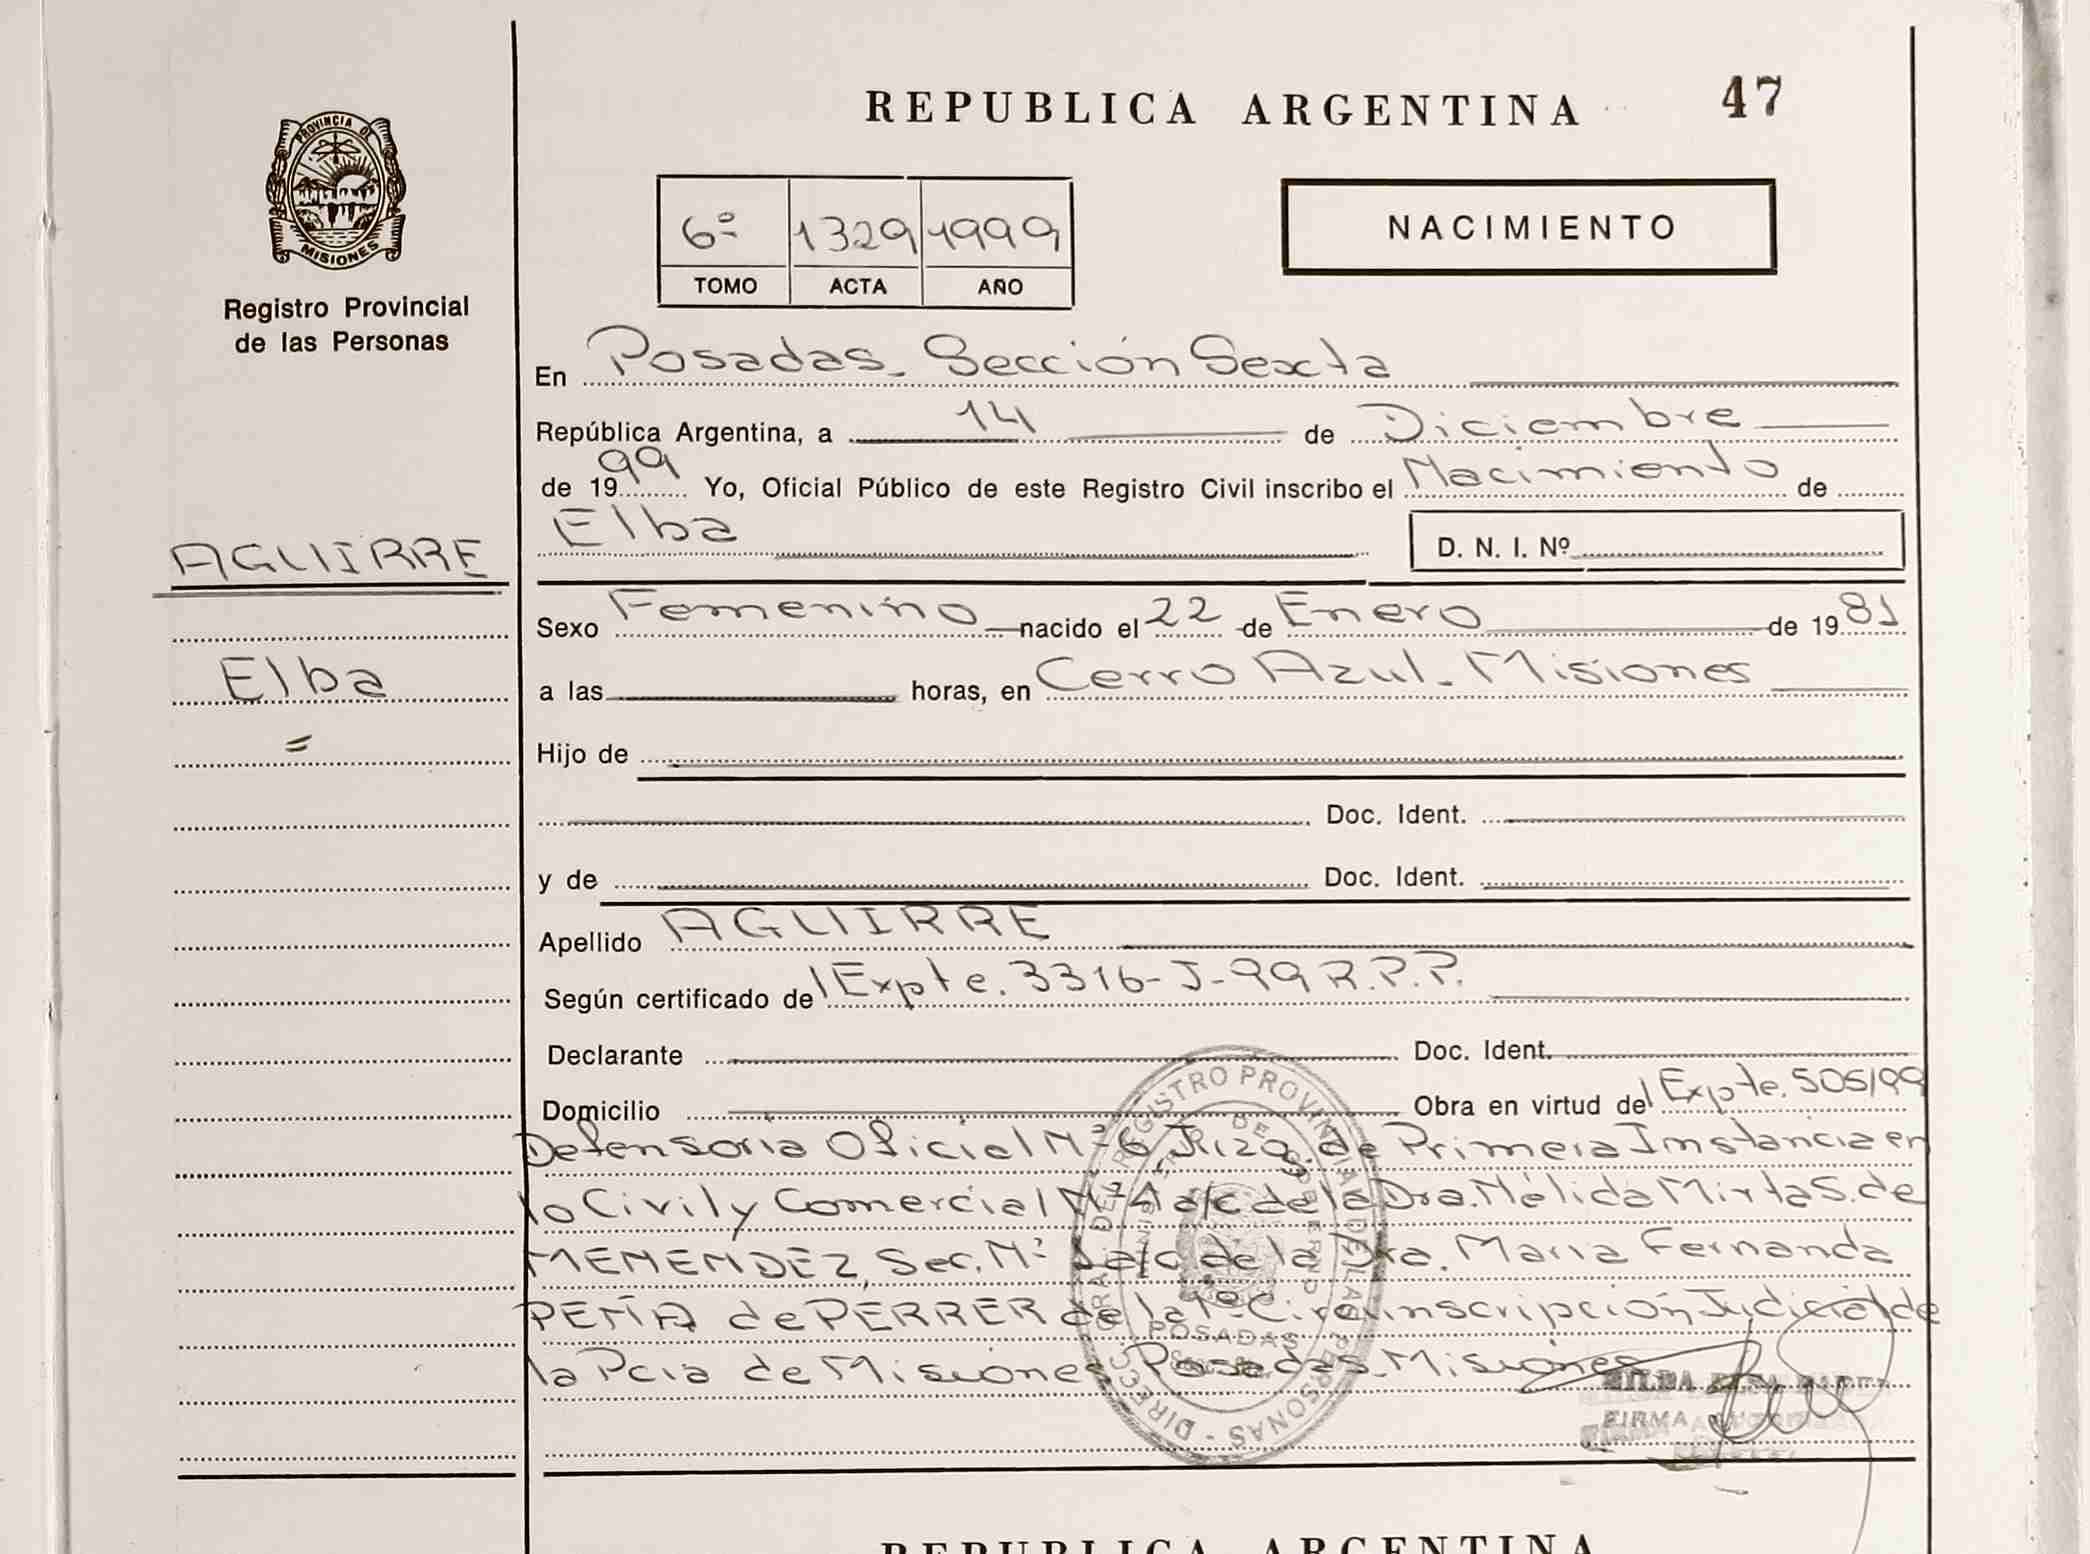 REPUBLICA ARGENTINA 47
PROVINCIA DE
MISIONES
Registro Provincial
de las Personas
6º 1329 1999
TOMO ACTA AÑO
NACIMIENTO
En Posadas - Sección Sexta
República Argentina, a 14 de Diciembre
de 1999 Yo, Oficial Público de este Registro Civil inscribo el Nacimiento de
Elba D. N. I. Nº
AGUIRRE
Elba
Sexo Femenino nacido el 22 de Enero de 1981
a las horas, en Cerro Azul - Misiones
Hijo de
Doc. Ident.
y de Doc. Ident.
Apellido AGUIRRE
Según certificado del Expte. 3316-J-99 R.P.P.
Declarante Doc. Ident.
Domicilio Obra en virtud del Expte. 505/99
Defensoria Oficial Nº 6, Juzg. de Primera Instancia en
lo Civil y Comercial Nº 4 a/c de la Dra. Nélida Mirta S. de
MENENDEZ, Sec. Nº a/c de la Dra. Maria Fernanda
PEÑA de PERRER de la 1º Circunscripción Judicial de
la Pcia de Misiones Posadas - Misiones
DIRECC. GRAL. DEL REGISTRO PROVINCIAL DE LAS PERSONAS
POSADAS
FIRMA
REPUBLICA ARGENTINA